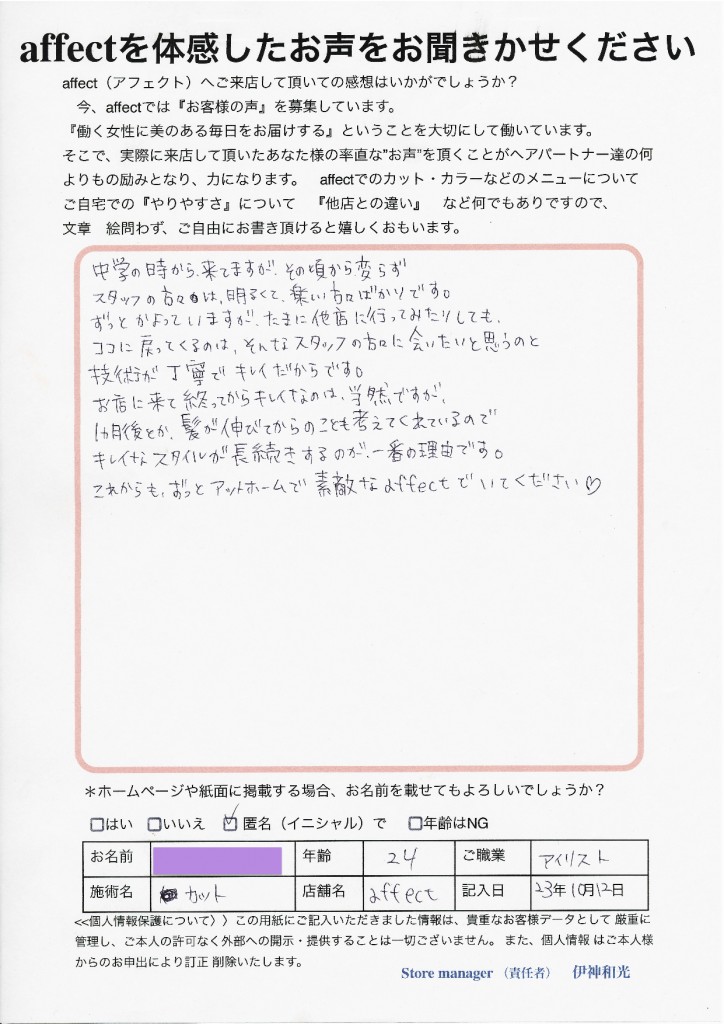 affectを体感したお声をお聞きかせください
affect（アフェクト）へご来店して頂いての感想はいかがでしょうか？
今、affectでは『お客様の声』を募集しています。
『働く女性に美のある毎日をお届けする』ということを大切にして働いています。
そこで、実際に来店して頂いたあなた様の率直な"お声"を頂くことがヘアパートナー達の何
よりもの励みとなり、力になります。　affectでのカット・カラーなどのメニューについて
ご自宅での『やりやすさ』について　『他店との違い』　など何でもありですので、
文章　絵問わず、ご自由にお書き頂けると嬉しくおもいます。
中学の時から、来てますが、その頃から変らず
スタッフの方々は、明るくて、楽しい方々ばかりです。
ずっとかよっていますが、たまに他店に行ってみたりしても、
ココに戻ってくるのは、そんなスタッフの方々に会いたいと思うのと
技術が丁寧でキレイだからです。
お店に来て終ってからキレイなのは、当然ですが、
1ヵ月後とか、髪が伸びてからのことも考えてくれているので
キレイなスタイルが長続きするのが、一番の理由です。
これからも、ずっとアットホームで素敵なaffectでいてください♡
＊ホームページや紙面に掲載する場合、お名前を載せてもよろしいでしょうか？
□はい　□いいえ　☑匿名（イニシャル）で　□年齢はNG
お名前　年齢　24　ご職業　アイリスト
施術名　カット　店舗名　affect　記入日　23年10月12日
<<個人情報保護について〉〉この用紙にご記入いただきました情報は、貴重なお客様データとして 厳重に
管理し、ご本人の許可なく外部への開示・提供することは一切ございません。 また、個人情報 はご本人様
からのお申出により訂正 削除いたします。
Store manager （責任者）　伊神和光